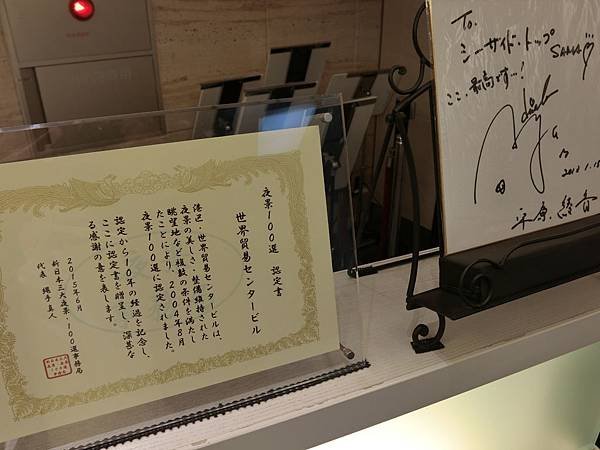 夜景100選 認定書
世界貿易センタービル
港区・世界貿易センタービルは、
夜景の美しさ、整備維持された
眺望地など複数の条件を満たし
たことにより、2004年8月
夜景100選に認定されました。
認定から10年の経過を記念し、
ここに認定書を贈呈し、深甚な
る感謝の意を表します。
2015年6月
新日本三大夜景・100選事務局
代表 縄手真人
To.
シーサイド・トップ
SAMA♡
ここ、最高です…!
平原 綾香